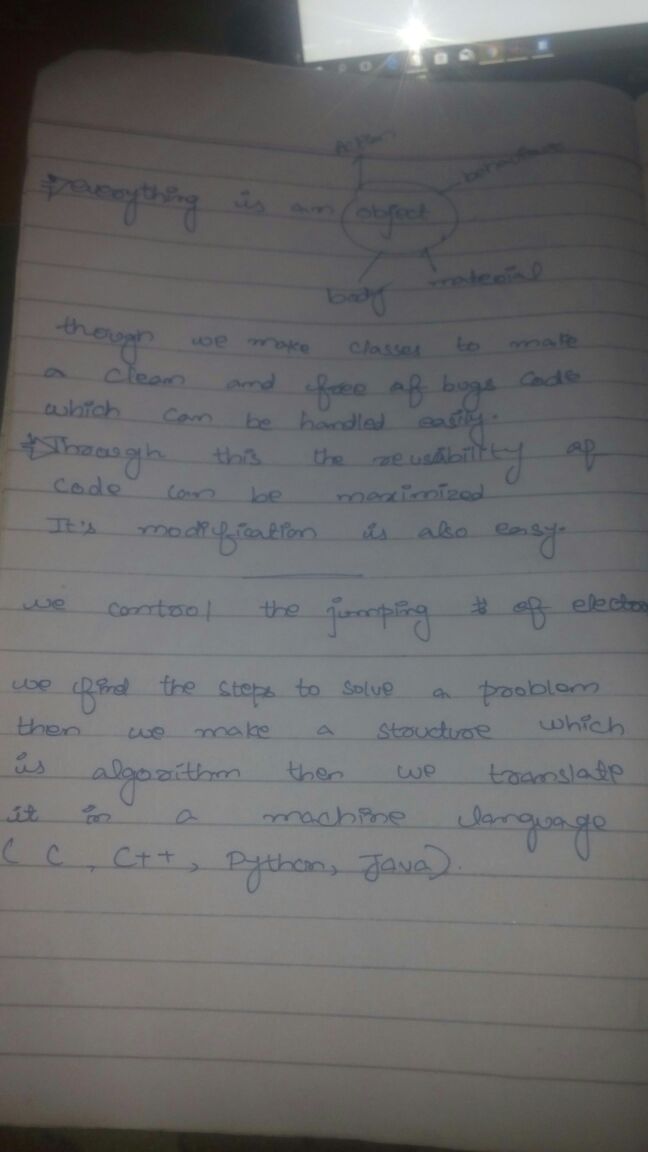 Action
behaviour
everything is an object
body
material
though we make classes to make
a clean and free of bugs code
which can be handled easily.
Through this the reusability of
code can be maximized
It's modification is also easy.
we control the jumping of
we find the steps to solve a problem
then we make a structure which
is algorithm then we translate
it in a machine language
( C, C++, Python, Java).